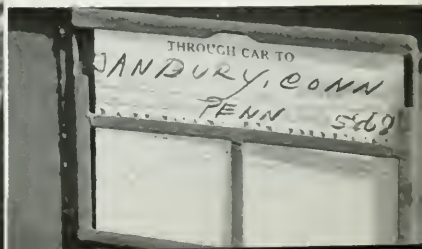 THROUGH CAR TO
DANBURY, CONN
PENN